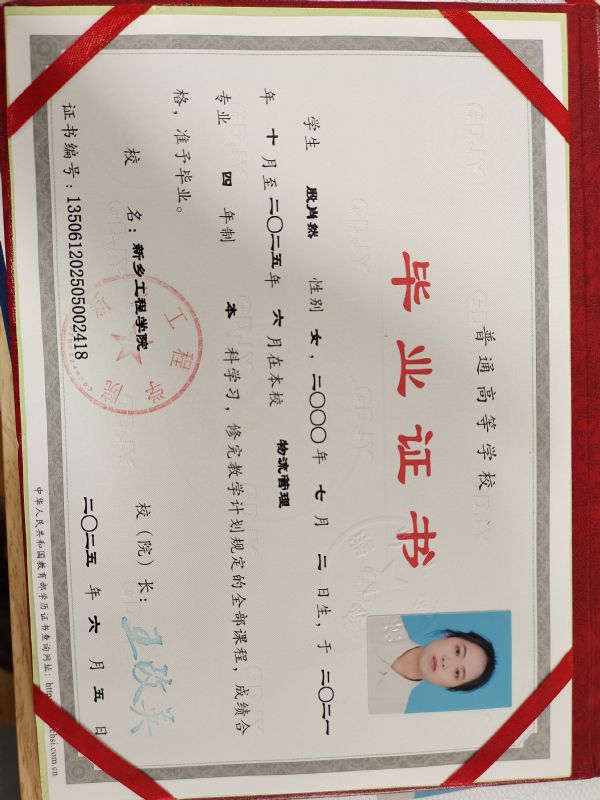 普通高等学校
毕业证书
学生 殷肖然 性别 女，二〇〇〇年 七 月 二 日生，于 二〇二一
年 十 月至 二〇二五年 六 月在本校 物流管理
专业 四 年制 本 科学习，修完教学计划规定的全部课程，成绩合
格，准予毕业。
校 名：新乡工程学院 校（院）长：
证书编号：135061202505002418 二〇二五 年 六 月 五 日
中华人民共和国教育部学历证书查询网址：